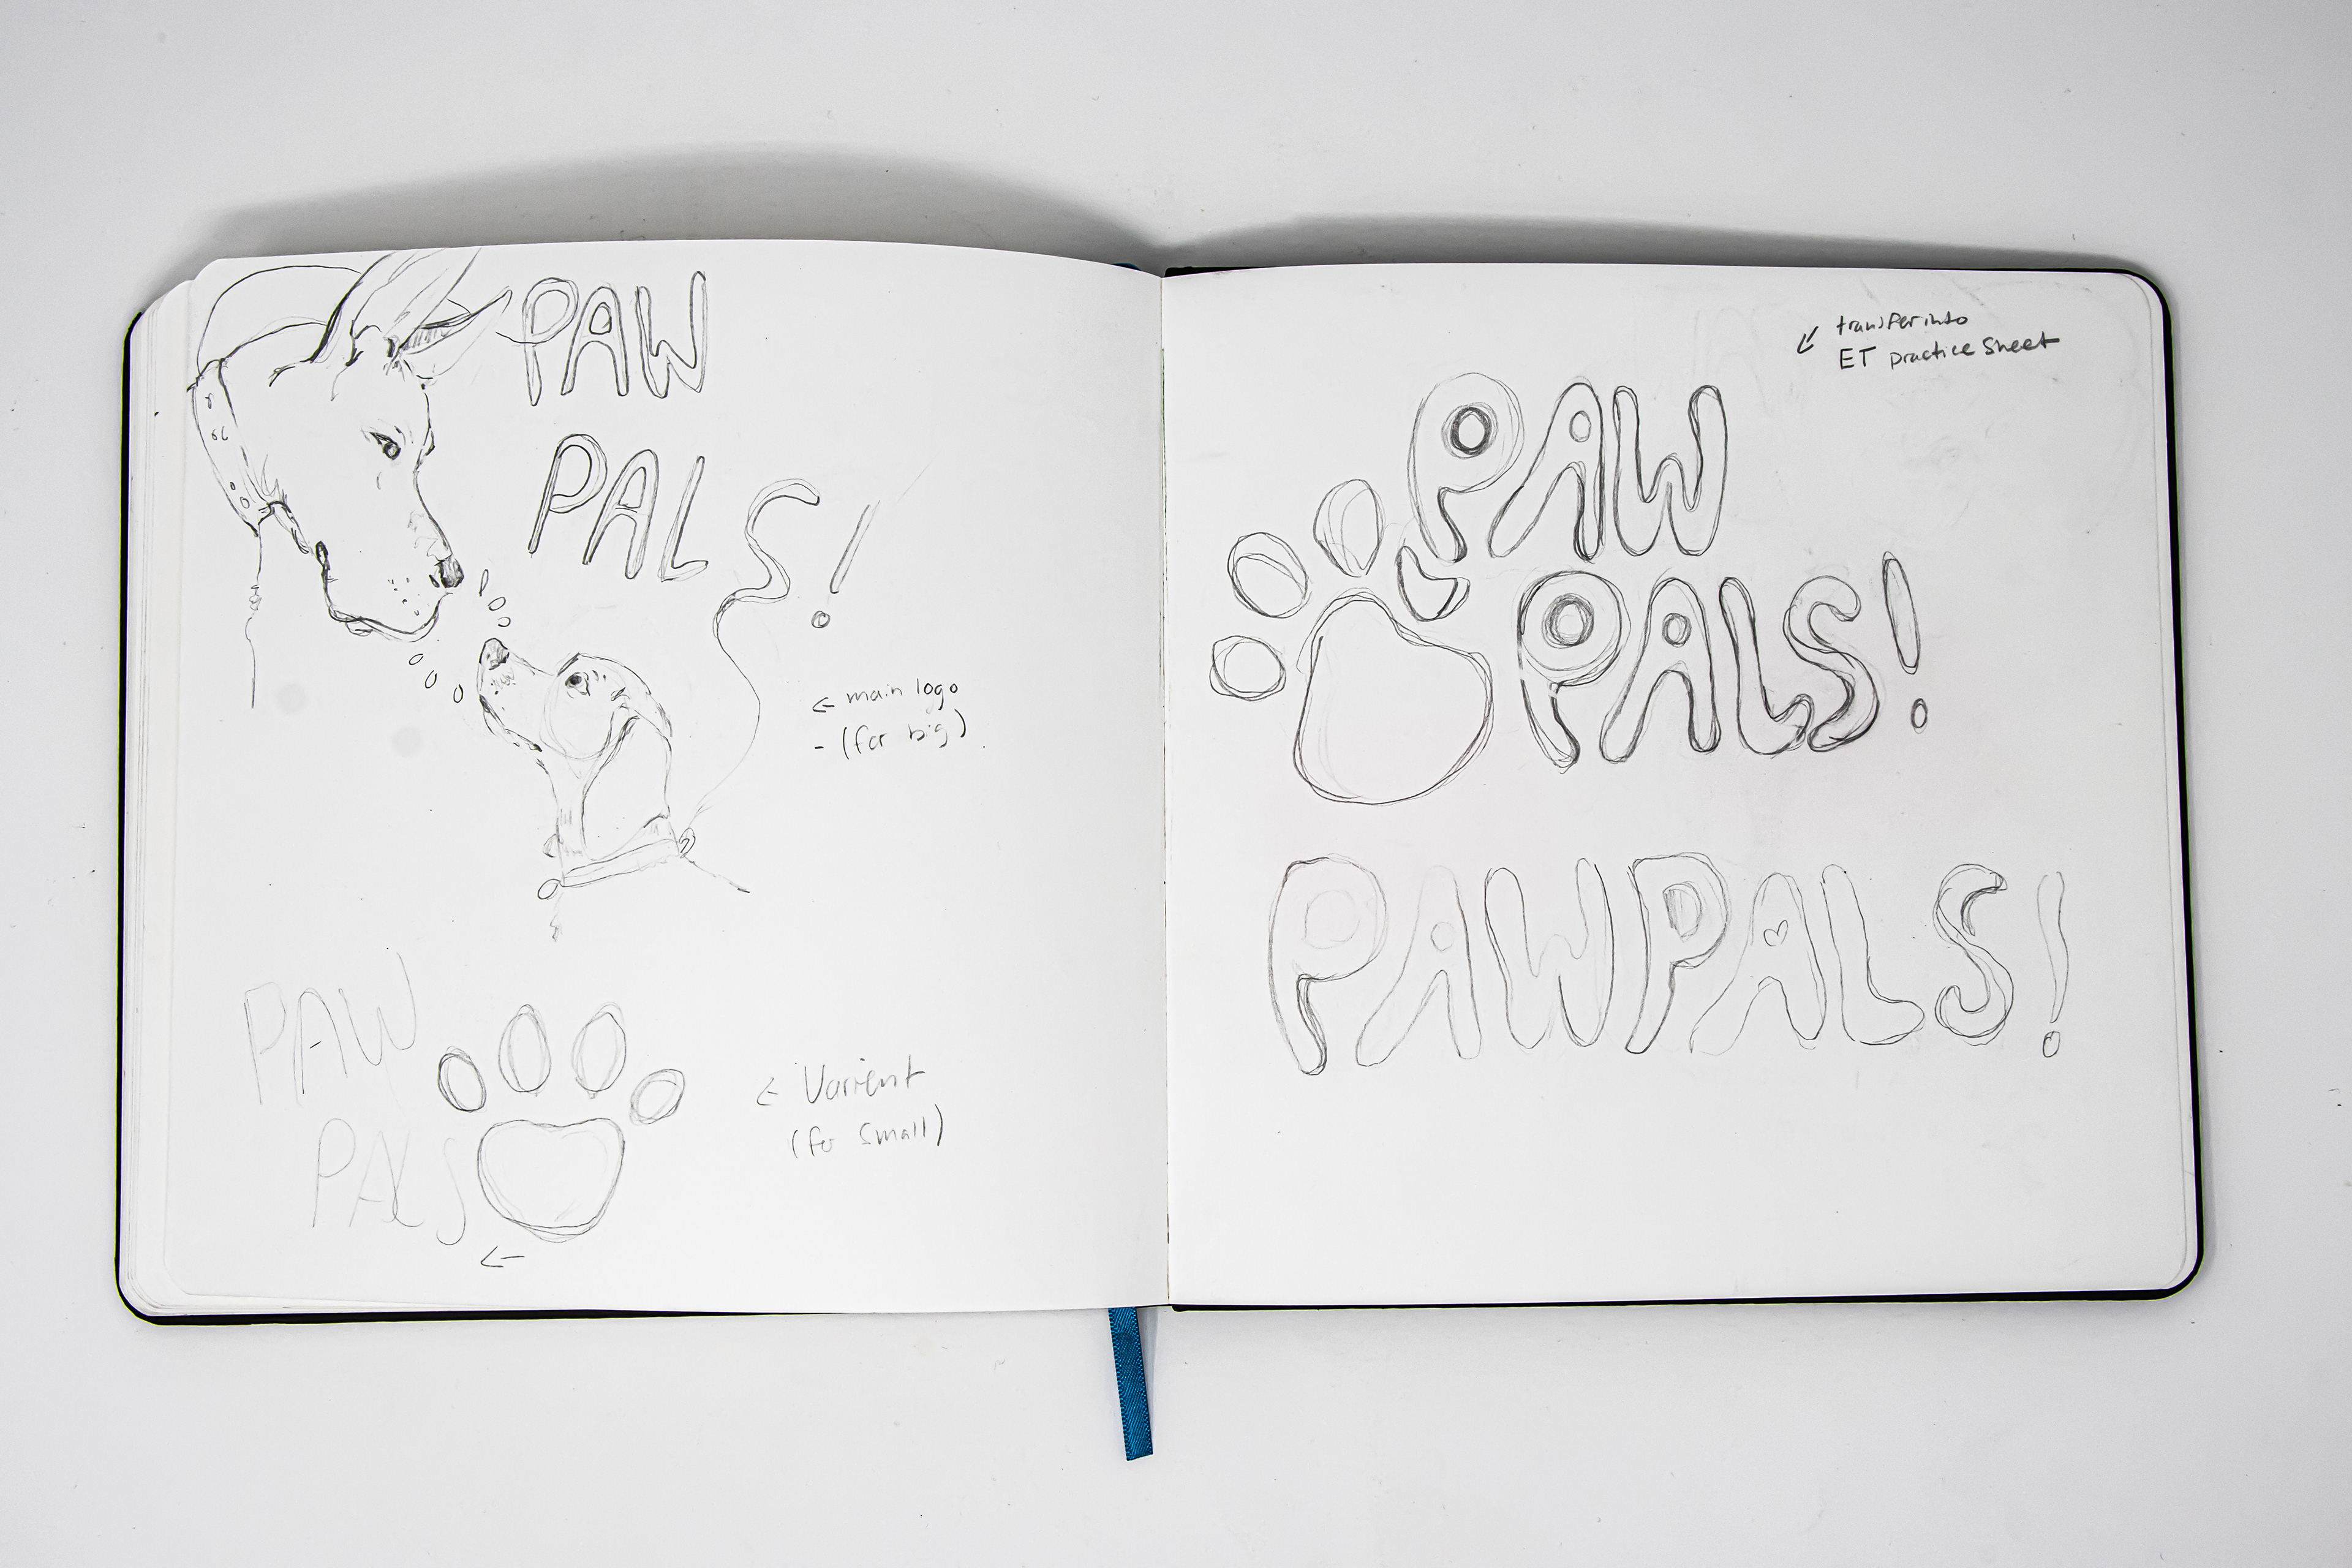 PAW
PALS!
← main logo
- (for big)
PAW
PALS
← Varient
(for small)
←
↙ transfer into
ET practice sheet
PAW
PALS!
PAWPALS!